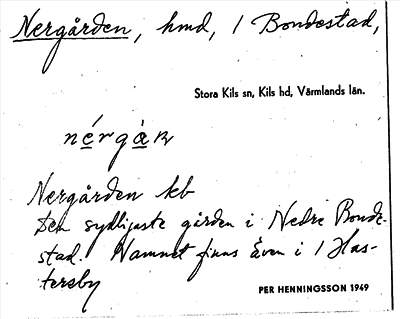 Nergården, hmd, / Bondestad,
Stora Kils sn, Kils hd, Värmlands län.
nérgàṛ
Nergården kb
Den sydligaste gården i Nedre Bonde-
stad. Namnet finns även i / Has-
tersby
PER HENNINGSSON 1949